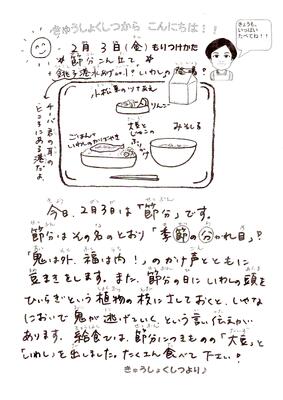 きゅうしょくしつから こんにちは!!
きょうも、
いっぱい
たべてね!!
2月 3日(金)もりつけかた
☆節分こん立て☆
銚子港水あげ いわしの
小松菜のツナあえ
大豆と
じゃこの
ごはん
いわしのかばやき
みそしる
チーバ君の耳の
ところにある港だよ。
今日、2月3日は「節分」です。
節分はその名のとおり「季節の分かれ目」?
「鬼は外、福は内!」のかけ声とともに
豆まきをします。また、節分の日にいわしの頭を
ひいらぎという植物の枝にさしておくと、いやな
においで鬼が逃げていく、という言い伝えが
あります。給食では、節分につきものの「大豆」と
「いわし」を出しました。たくさん食べて下さい!
きゅうしょくしつより♪